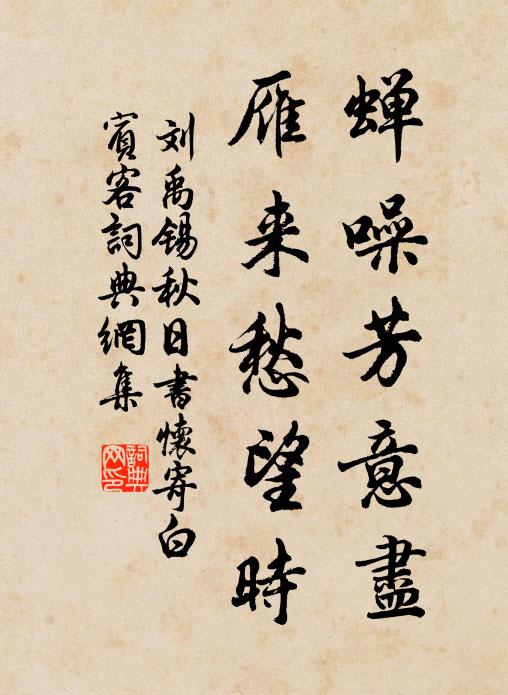 蝉噪芳意盡
雁来愁望時
刘禹锡秋日書懷寄白
賓客詞典網集
詞典網印